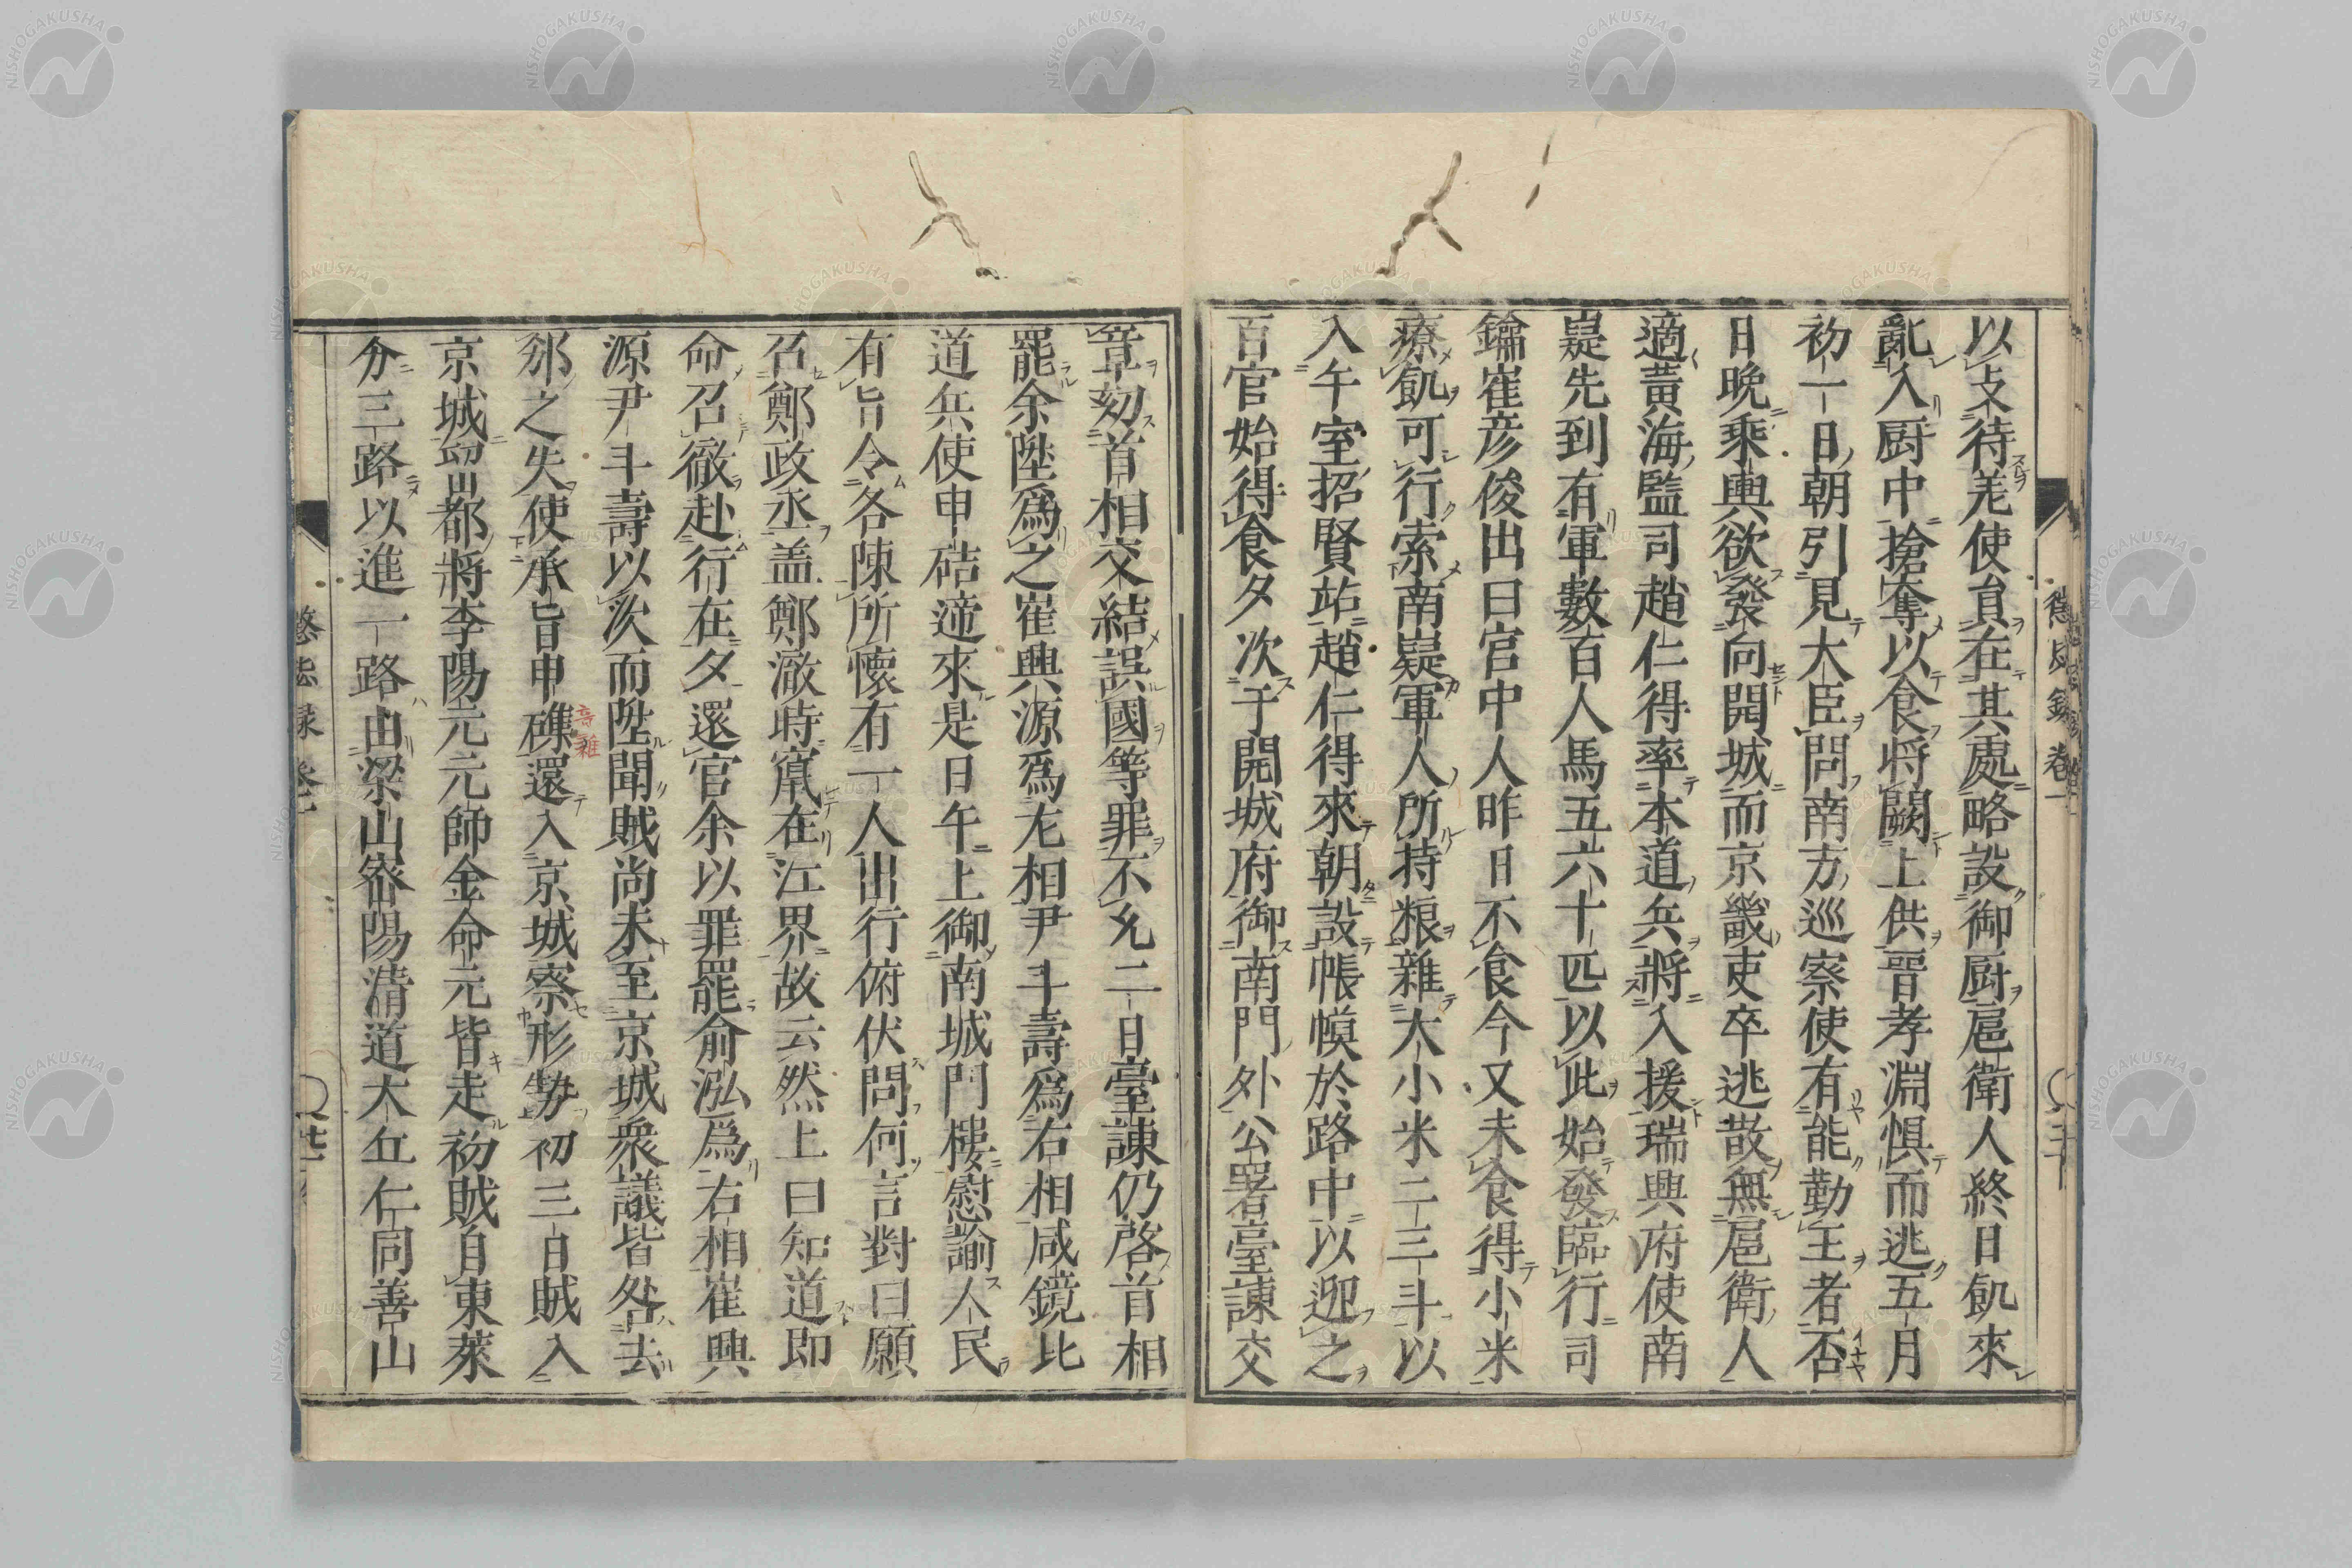 懲毖録卷一
以支待差使員在其處略設御厨扈衛人終日飢來
亂入厨中搶奪以食將闕上供晉孝淵懼而逃五月
初一日朝引見大臣問南方巡察使有能勤王者否
日晩乘輿欲發向開城而京畿吏卒逃散無扈衛人
適黃海監司趙仁得率本道兵將入援瑞興府使南
嶷先到有軍數百人馬五六十匹以此始發臨行司
鑰崔彦俊出曰宮中人昨日不食今又未食得小米
療飢可行索南嶷軍人所持粮雜大小米二三斗以
入午室招賢站趙仁得來朝設帳幙於路中以迎之
百官始得食夕次于開城府御南門外公署臺諫交
章劾首相交結誤國等罪不允二日臺諫仍啓首相
罷余陞爲之崔興源爲左相尹斗壽爲右相咸鏡北
道兵使申硈遞來是日午上御南城門樓慰諭人民
有旨令各陳所懷有一人出行俯伏問何言對曰願
召鄭政丞盖鄭澈時竄在江界故云然上曰知道即
命召徹赴行在夕還宮余以罪罷兪泓爲右相崔興
源尹斗壽以次而陞聞賊尚未至京城衆議皆咎去
邠之失使承旨申磼還入京城察形勢初三日賊入
京城留都將李陽元元師金命元皆走初賊自東萊
分三路以進一路由梁山密陽淸道大丘仁同善山
音雜
NISHOGAKUSHA